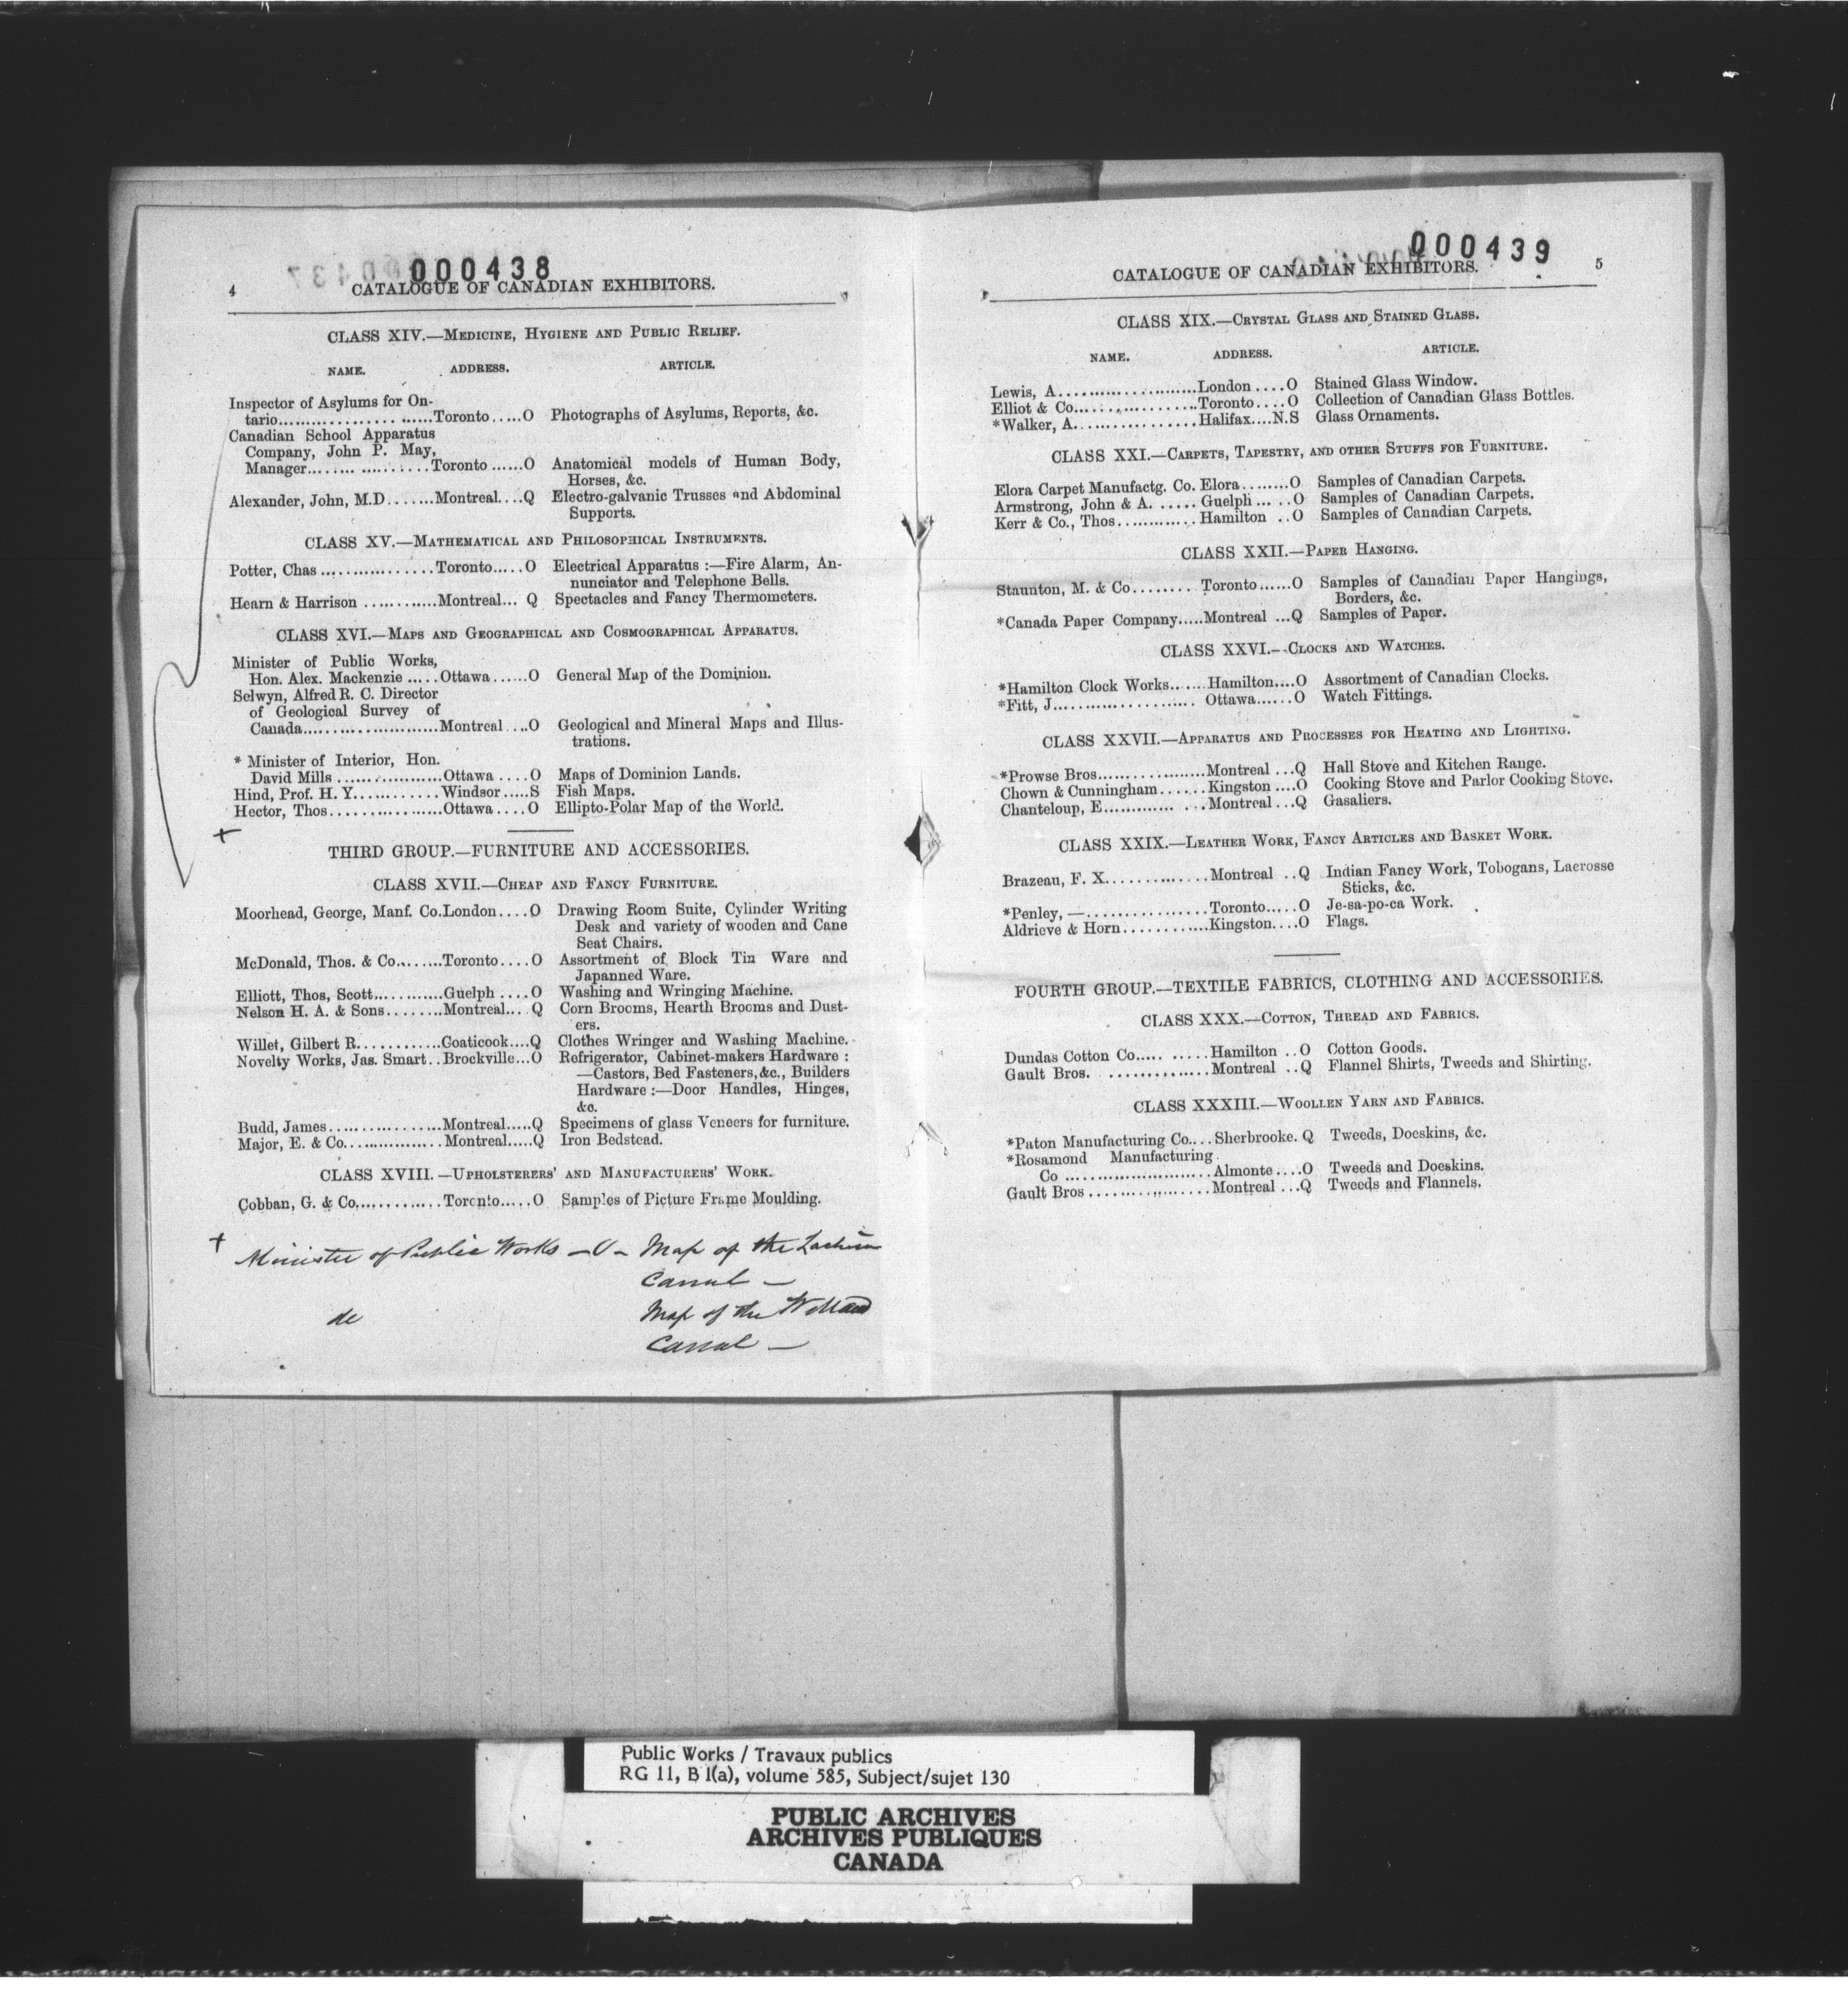 000438
4 CATALOGUE OF CANADIAN EXHIBITORS.
CLASS XIV.—Medicine, Hygiene and Public Relief.
NAME. ADDRESS. ARTICLE.
Inspector of Asylums for On-
tario..................Toronto.....O Photographs of Asylums, Reports, &c.
Canadian School Apparatus
Company, John P. May,
Manager..................Toronto......O Anatomical models of Human Body,
Horses, &c.
Alexander, John, M.D.......Montreal....Q Electro-galvanic Trusses and Abdominal
Supports.
CLASS XV.—Mathematical and Philosophical Instruments.
Potter, Chas................Toronto.....O Electrical Apparatus :—Fire Alarm, An-
nunciator and Telephone Bells.
Hearn & Harrison ...........Montreal... Q Spectacles and Fancy Thermometers.
CLASS XVI.—Maps and Geographical and Cosmographical Apparatus.
Minister of Public Works,
Hon. Alex. Mackenzie .....Ottawa......O General Map of the Dominion.
Selwyn, Alfred R. C. Director
of Geological Survey of
Canada......................Montreal....O Geological and Mineral Maps and Illus-
trations.
* Minister of Interior, Hon.
David Mills .................Ottawa ....O Maps of Dominion Lands.
Hind, Prof. H. Y............Windsor.....S Fish Maps.
Hector, Thos................Ottawa ....O Ellipto-Polar Map of the World.
+
THIRD GROUP.—FURNITURE AND ACCESSORIES.
CLASS XVII.—Cheap and Fancy Furniture.
Moorhead, George, Manf. Co.London....O Drawing Room Suite, Cylinder Writing
Desk and variety of wooden and Cane
Seat Chairs.
McDonald, Thos. & Co........Toronto....O Assortment of Block Tin Ware and
Japanned Ware.
Elliott, Thos, Scott...........Guelph ....O Washing and Wringing Machine.
Nelson H. A. & Sons........Montreal... Q Corn Brooms, Hearth Brooms and Dust-
ers.
Willet, Gilbert R............Coaticook....Q Clothes Wringer and Washing Machine.
Novelty Works, Jas. Smart..Brockville...O Refrigerator, Cabinet-makers Hardware :
—Castors, Bed Fasteners, &c., Builders
Hardware :—Door Handles, Hinges,
&c.
Budd, James.................Montreal.....Q Specimens of glass Veneers for furniture.
Major, E. & Co...............Montreal.....Q Iron Bedstead.
CLASS XVIII.—Upholsterers' and Manufacturers' Work.
Cobban, G. & Co............Toronto.....O Samples of Picture Frame Moulding.
+ Minister of Public Works — O — Map of the Lachine
Canal —
do Map of the Welland
Canal —
000439
CATALOGUE OF CANADIAN EXHIBITORS. 5
CLASS XIX.—Crystal Glass and Stained Glass.
NAME. ADDRESS. ARTICLE.
Lewis, A....................London....O Stained Glass Window.
Elliot & Co..................Toronto....O Collection of Canadian Glass Bottles.
*Walker, A..................Halifax....N.S Glass Ornaments.
CLASS XXI.—Carpets, Tapestry, and other Stuffs for Furniture.
Elora Carpet Manufactg. Co. Elora........O Samples of Canadian Carpets.
Armstrong, John & A. ..... Guelph ... ..O Samples of Canadian Carpets.
Kerr & Co., Thos............ Hamilton ..O Samples of Canadian Carpets.
CLASS XXII.—Paper Hanging.
Staunton, M. & Co........ Toronto......O Samples of Canadian Paper Hangings,
Borders, &c.
*Canada Paper Company.....Montreal ...Q Samples of Paper.
CLASS XXVI.—Clocks and Watches.
*Hamilton Clock Works.......Hamilton....O Assortment of Canadian Clocks.
*Fitt, J..................... Ottawa......O Watch Fittings.
CLASS XXVII.—Apparatus and Processes for Heating and Lighting.
*Prowse Bros.................Montreal ...Q Hall Stove and Kitchen Range.
Chown & Cunningham...... Kingston ....O Cooking Stove and Parlor Cooking Stove.
Chanteloup, E............. ...Montreal...Q Gasaliers.
CLASS XXIX.—Leather Work, Fancy Articles and Basket Work.
Brazeau, F. X...............Montreal ..Q Indian Fancy Work, Tobogans, Lacrosse
Sticks, &c.
*Penley, —.................Toronto.....O Je-sa-po-ca Work.
Aldrieve & Horn............Kingston....O Flags.
FOURTH GROUP.—TEXTILE FABRICS, CLOTHING AND ACCESSORIES.
CLASS XXX.—Cotton, Thread and Fabrics.
Dundas Cotton Co..... .....Hamilton ..O Cotton Goods.
Gault Bros. ...............Montreal ..Q Flannel Shirts, Tweeds and Shirting.
CLASS XXXIII.—Woollen Yarn and Fabrics.
*Paton Manufacturing Co....Sherbrooke. Q Tweeds, Doeskins, &c.
*Rosamond Manufacturing
Co ........................Almonte....O Tweeds and Doeskins.
Gault Bros ..................Montreal ...Q Tweeds and Flannels.
Public Works / Travaux publics
RG 11, B 1(a), volume 585, Subject/sujet 130
PUBLIC ARCHIVES
ARCHIVES PUBLIQUES
CANADA